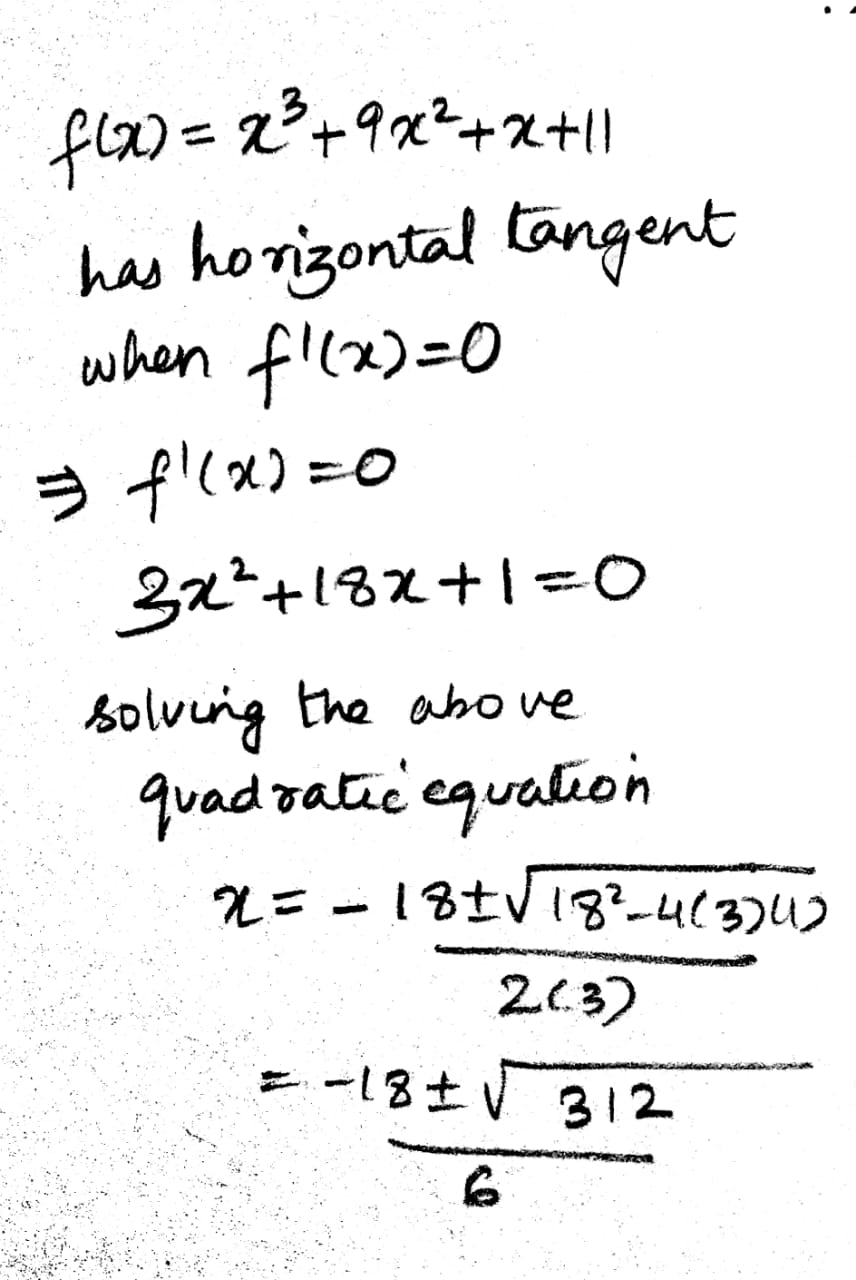 f(x) = x³+9x²+x+11
has horizontal tangent
when f'(x)=0
⇒ f'(x)=0
3x²+18x+1=0
solving the above
quadratic equation
x = -18±√18²-4(3)(1)
2(3)
= -18±√312
6